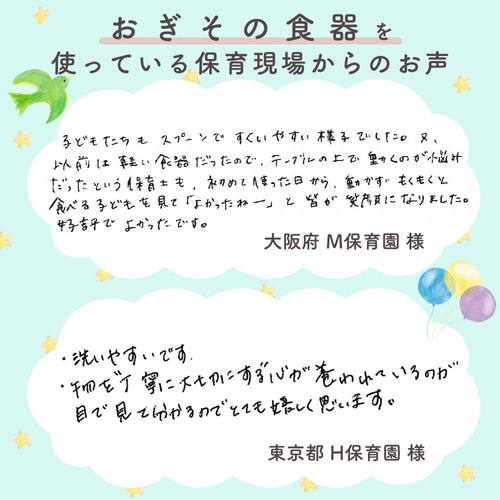 おぎその食器を
使っている保育現場からのお声
子どもたちも スプーンで すくいやすい 様子でした。又、
以前は 軽い 食器だったので、テーブルの上で 動くのが悩み
だったという保育士も、初めて使った日から、動かず もくもくと
食べる子どもを見て「よかったねー」と 皆が 笑顔になりました。
好評で よかったです。
大阪府 M保育園 様
・洗いやすいです。
・物を丁寧に大切にする心が養われているのが
目で見て分かるのでとても嬉しく思います。
東京都 H保育園 様